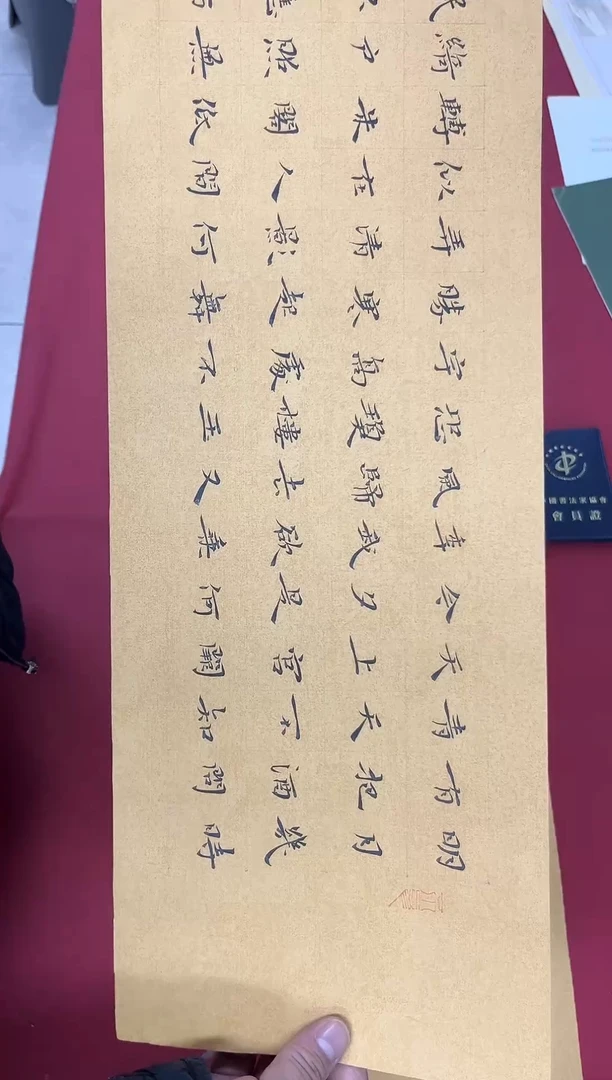 明月幾時
有把酒問
青天不知
天上宮闕
今夕是何
年我欲乘
風歸去又
恐瓊樓玉
宇高處不
勝寒起舞
弄清影何
似在人間
轉朱閣低
綺戶照無
眠不應
國書法家協會
會員證